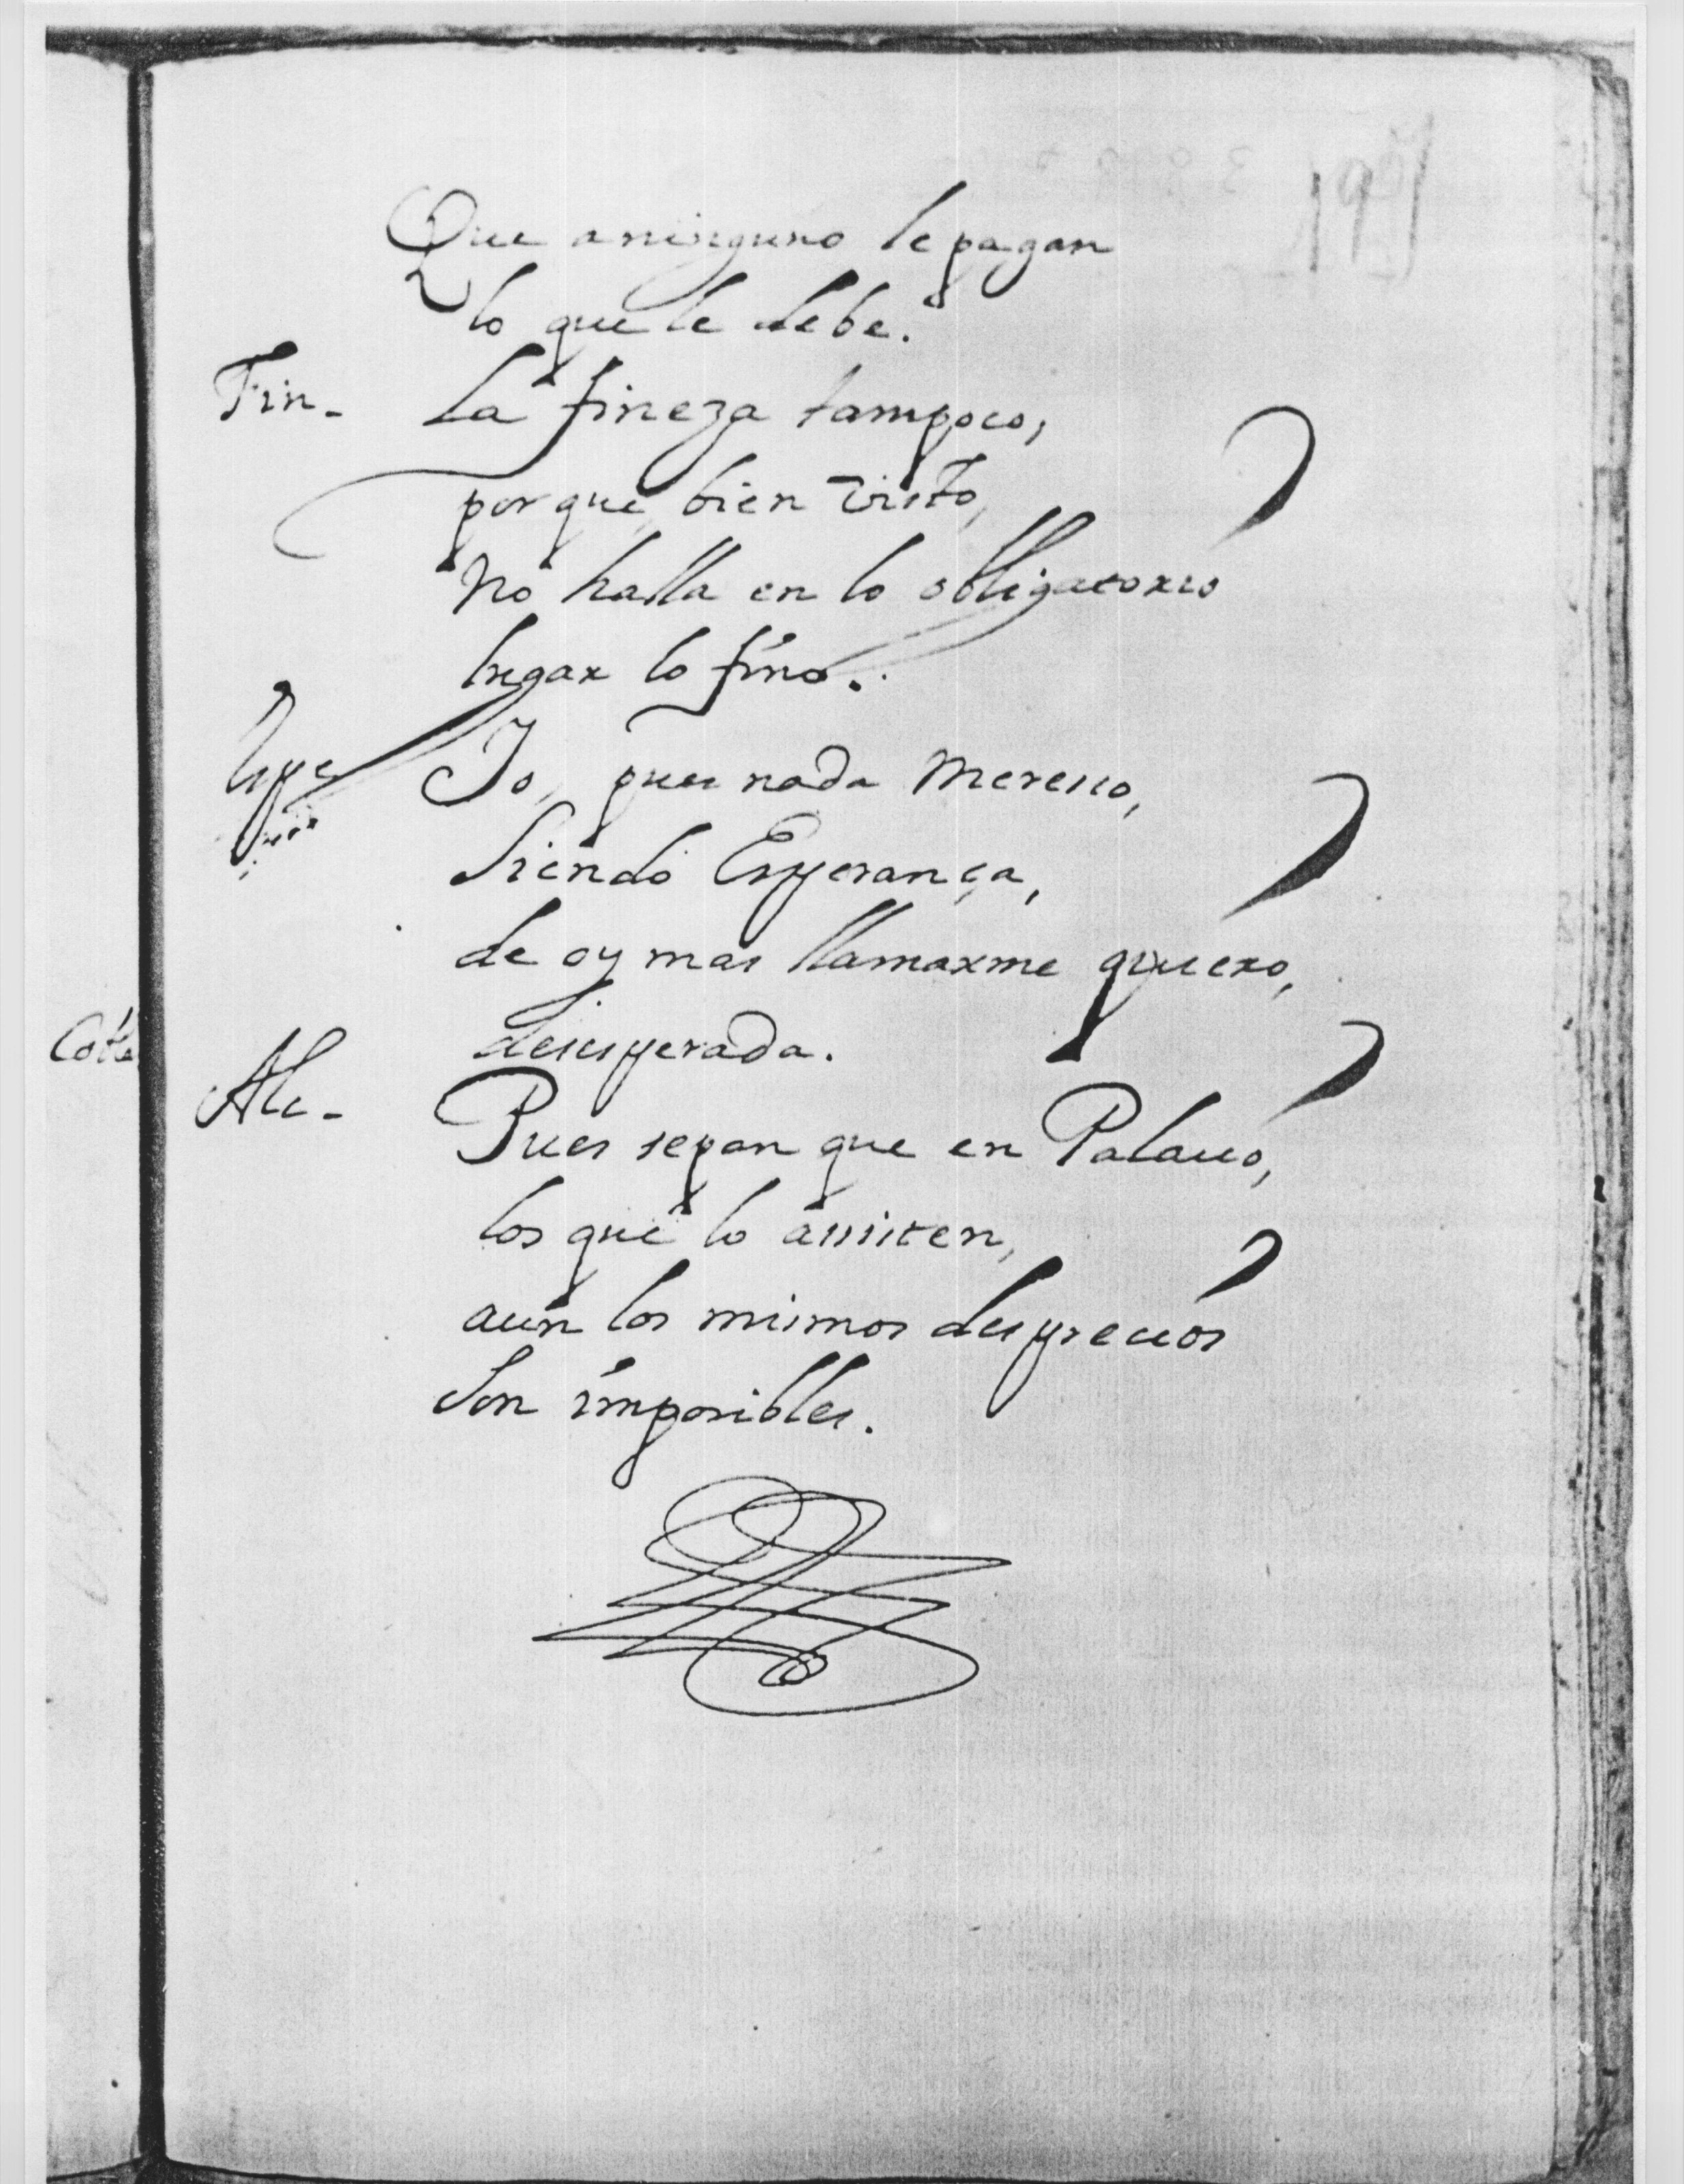 Que a ninguno le pagan
lo que le debe.
Fin- La fineza tampoco,
porque bien visto,
No halla en lo obligatorio
lugar lo fino.
Espe Io, pues nada Merezco,
Siendo Esperança,
de oy mas llamarme quiero,
desesperada.
Ale- Pues sepan que en Palacio,
los que lo assisten,
aun los mismos desprecios
Son imposibles.